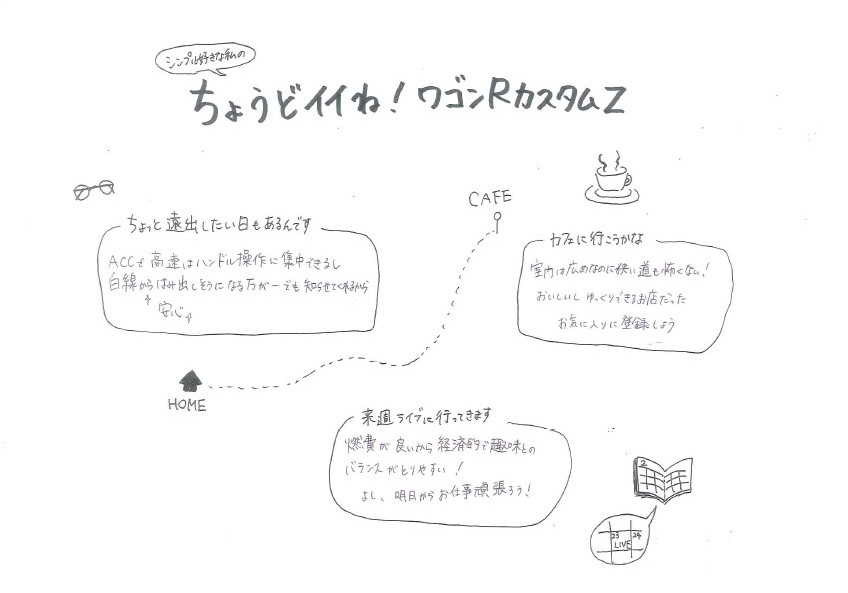 シンプル好きな私の
ちょうどイイね！ワゴンRカスタムZ
CAFE
ちょっと遠出したい日もあるんです
ACCで高速はハンドル操作に集中できるし
白線からはみ出しそうになる万が一でも知らせてくれるから
安心
カフェに行こうかな
室内は広めなのに狭い道も怖くない！
おいしいし ゆっくりできるお店だった
お気に入りに登録しよう
HOME
来週ライブに行ってきます
燃費が良いから経済的で趣味との
バランスがとりやすい！
よし、明日からお仕事頑張ろう！
2
23 24
LIVE